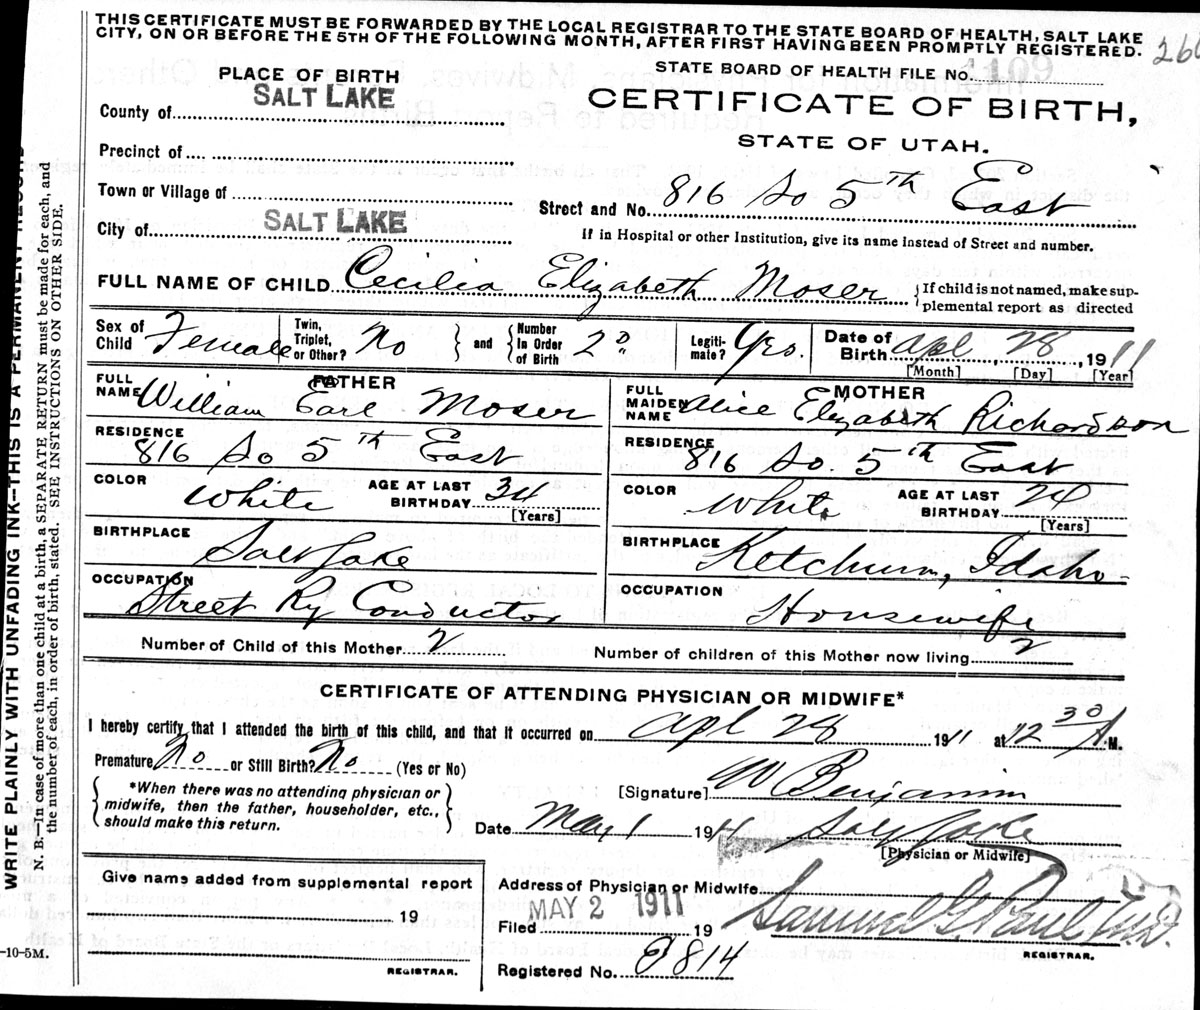 THIS CERTIFICATE MUST BE FORWARDED BY THE LOCAL REGISTRAR TO THE STATE BOARD OF HEALTH, SALT LAKE
CITY, ON OR BEFORE THE 5TH OF THE FOLLOWING MONTH, AFTER FIRST HAVING BEEN PROMPTLY REGISTERED.
STATE BOARD OF HEALTH FILE No. 1109
PLACE OF BIRTH
CERTIFICATE OF BIRTH,
STATE OF UTAH.
County of SALT LAKE
Precinct of
Town or Village of
City of SALT LAKE
Street and No. 816 So 5th East
If in Hospital or other Institution, give its name instead of Street and number.
FULL NAME OF CHILD Cecilia Elizabeth Moser
If child is not named, make sup-
plemental report as directed
Sex of Child Female
Twin, Triplet, or Other? No
and
Number In Order of Birth 2D
Legiti-mate? Yes.
Date of Birth Apl 28, 1911
[Month] [Day] [Year]
FATHER
FULL NAME William Earl Moser
RESIDENCE 816 So 5th East
COLOR White
AGE AT LAST BIRTHDAY 34
[Years]
BIRTHPLACE Salt Lake
OCCUPATION Street Ry Conductor
MOTHER
FULL MAIDEN NAME Alice Elizabeth Richardson
RESIDENCE 816 So 5th East
COLOR White
AGE AT LAST BIRTHDAY 24
[Years]
BIRTHPLACE Ketchum, Idaho
OCCUPATION Housewife
Number of Child of this Mother 2
Number of children of this Mother now living 2
CERTIFICATE OF ATTENDING PHYSICIAN OR MIDWIFE*
I hereby certify that I attended the birth of this child, and that it occurred on Apl 28 1911 at 12 30 A.M.
Premature No or Still Birth? No (Yes or No)
*When there was no attending physician or
midwife, then the father, householder, etc.,
should make this return.
[Signature] W Benjamin
Date May 1 1911 Salt Lake
[Physician or Midwife]
Give name added from supplemental report
19
REGISTRAR.
Address of Physician or Midwife
Filed MAY 2 1911 19
Samuel G. Paul M.D.
REGISTRAR.
Registered No. B814
WRITE PLAINLY WITH UNFADING INK—THIS IS A PERMANENT RECORD
N. B.—In case of more than one child at a birth, a SEPARATE RETURN must be made for each, and
the number of each, in order of birth, stated. SEE INSTRUCTIONS ON OTHER SIDE.
-10-5M.